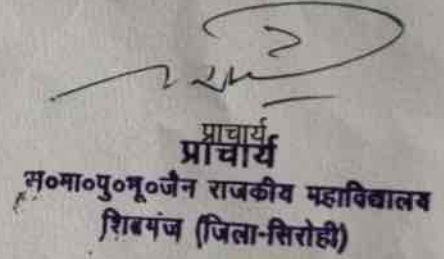 प्राचार्य
प्राचार्य
स०मा०पु०भू०जैन राजकीय महाविद्यालय
शिवगंज (जिला-सिरोही)